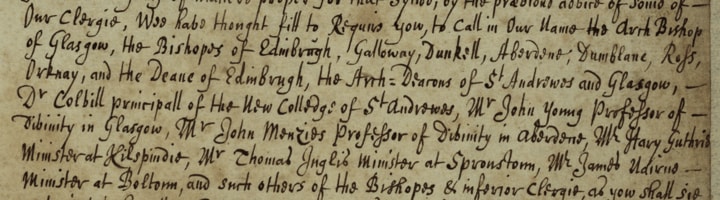 for that Synod, by the precious advice of some of –
Our Clergie, Wee have thought fitt to Require yow, to Call in Our Name the Arch Bishop
of Glasgow, the Bishopes of Edinbrugh, Galloway, Dunkell, Aberdene, Dumblane, Ross,
Orknay, and the Deane of Edinbrugh, the Arch-Deacons of St Andrewes and Glasgow, –
Dr Colvill principall of the New Colledge of St Andrewes, Mr John young Professor of –
Divinity in Glasgow, Mr John Menzies Professor of Divinity in Aberdene, Mr Hary Guthrie
Minister at Kilspindie, Mr Thomas Inglis Minister at Sproustoun, Mr James
Minister at Boltoun, and such others of the Bishopes & inferior Clergie, as yow shall see